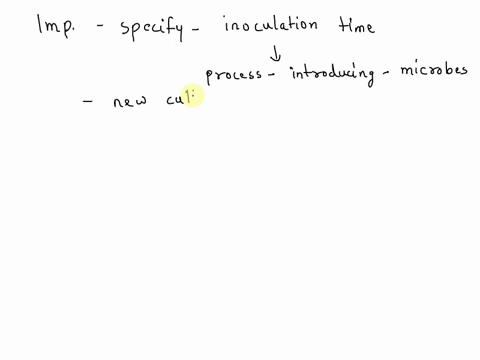 Imp. - specify - inoculation time
↓
process - introducing - microbes
- new